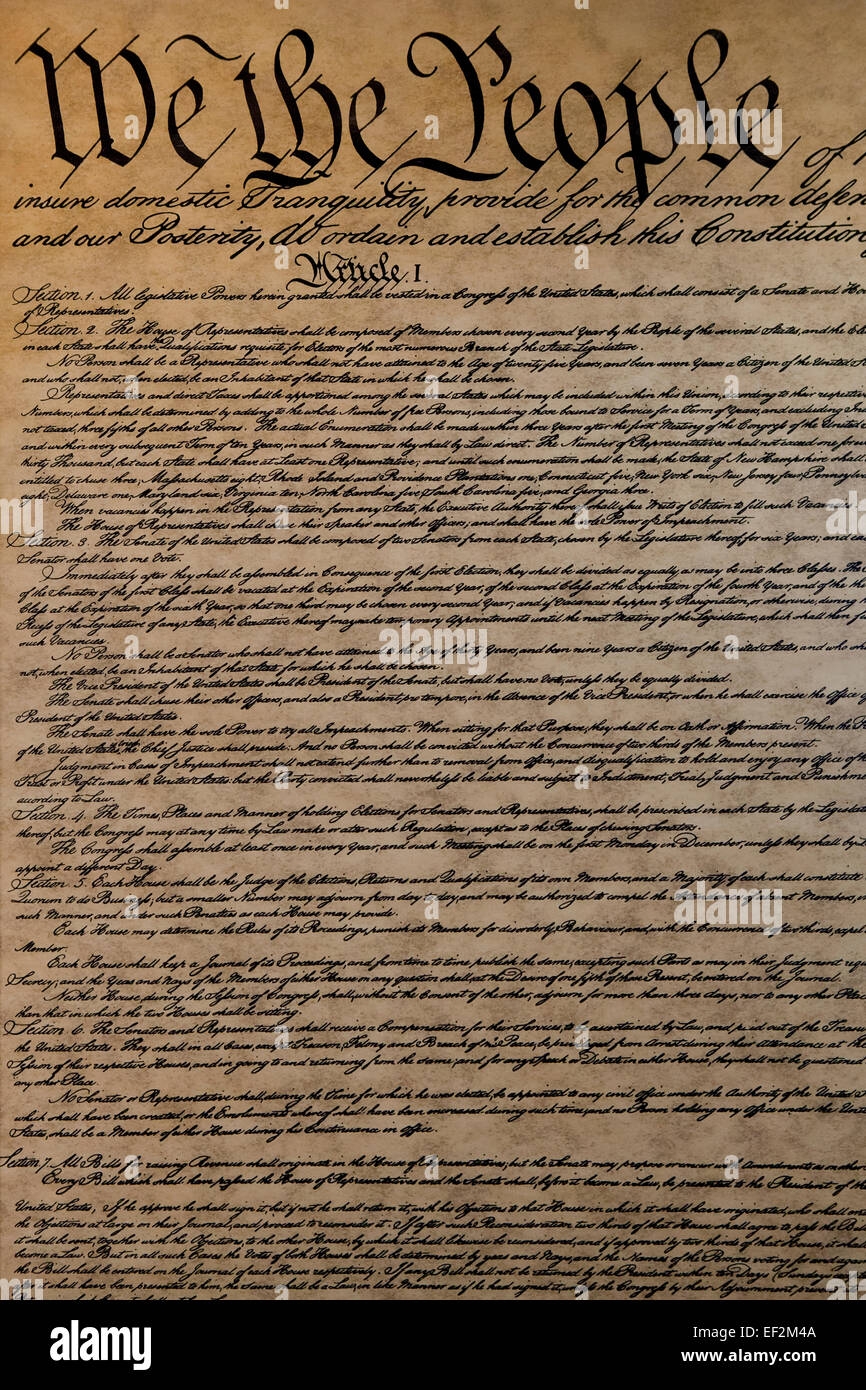 We the People of
insure domestic Tranquility, provide for the common defen
and our Posterity, do ordain and establish this Constitution
Article. I.
Section. 1. All legislative Powers herein granted shall be vested in a Congress of the United States, which shall consist of a Senate and Hou
of Representatives.
Section. 2. The House of Representatives shall be composed of Members chosen every second Year by the People of the several States, and the Ele
in each State shall have Qualifications requisite for Electors of the most numerous Branch of the State Legislature.
No Person shall be a Representative who shall not have attained to the Age of twenty five Years, and been seven Years a Citizen of the United Sta
and who shall not, when elected, be an Inhabitant of that State in which he shall be chosen.
Representatives and direct Taxes shall be apportioned among the several States which may be included within this Union, according to their respective
Numbers, which shall be determined by adding to the whole Number of free Persons, including those bound to Service for a Term of Years, and excluding Ind
not taxed, three fifths of all other Persons. The actual Enumeration shall be made within three Years after the first Meeting of the Congress of the United
and within every subsequent Term of ten Years, in such Manner as they shall by Law direct. The Number of Representatives shall not exceed one for ev
thirty Thousand, but each State shall have at Least one Representative; and until such enumeration shall be made, the State of New Hampshire shall
entitled to chuse three, Massachusetts eight, Rhode Island and Providence Plantations one, Connecticut five, New York six, New Jersey four, Pennsylva
eight, Delaware one, Maryland six, Virginia ten, North Carolina five, South Carolina five, and Georgia three.
When vacancies happen in the Representation from any State, the Executive Authority thereof shall issue Writs of Election to fill such Vacancies.
The House of Representatives shall chuse their Speaker and other Officers; and shall have the sole Power of Impeachment.
Section. 3. The Senate of the United States shall be composed of two Senators from each State, chosen by the Legislature thereof, for six Years; and eac
Senator shall have one Vote.
Immediately after they shall be assembled in Consequence of the first Election, they shall be divided as equally as may be into three Classes. The
of the Senators of the first Class shall be vacated at the Expiration of the second Year, of the second Class at the Expiration of the fourth Year, and of the th
Class at the Expiration of the sixth Year, so that one third may be chosen every second Year; and if Vacancies happen by Resignation, or otherwise, during
Recess of the Legislature of any State, the Executive thereof may make temporary Appointments until the next Meeting of the Legislature, which shall then fi
such Vacancies.
No Person shall be a Senator who shall not have attained to the Age of thirty Years, and been nine Years a Citizen of the United States, and who sha
not, when elected, be an Inhabitant of that State for which he shall be chosen.
The Vice President of the United States shall be President of the Senate, but shall have no Vote, unless they be equally divided.
The Senate shall chuse their other Officers, and also a President pro tempore, in the Absence of the Vice President, or when he shall exercise the Office of
President of the United States.
The Senate shall have the sole Power to try all Impeachments. When sitting for that Purpose, they shall be on Oath or Affirmation. When the
of the United States the Chief Justice shall preside: And no Person shall be convicted without the Concurrence of two thirds of the Members present.
Judgment in Cases of Impeachment shall not extend further than to removal from Office, and disqualification to hold and enjoy any Office of
Trust or Profit under the United States: but the Party convicted shall nevertheless be liable and subject to Indictment, Trial, Judgment and Punishmen
according to Law.
Section. 4. The Times, Places and Manner of holding Elections for Senators and Representatives, shall be prescribed in each State by the Legislat
thereof; but the Congress may at any time by Law make or alter such Regulation, except as to the Places of chusing Senators.
The Congress shall assemble at least once in every Year, and such Meeting shall be on the first Monday in December, unless they shall by
appoint a different Day.
Section. 5. Each House shall be the Judge of the Elections, Returns and Qualifications of its own Members, and a Majority of each shall constitute
Quorum to do Business; but a smaller Number may adjourn from day to day, and may be authorized to compel the Attendance of absent Members, in
such Manner, and under such Penalties as each House may provide.
Each House may determine the Rules of its Proceedings, punish its Members for disorderly Behaviour, and, with the Concurrence of two thirds, expel
Member.
Each House shall keep a Journal of its Proceedings, and from time to time publish the same, excepting such Parts as may in their Judgment requ
Secrecy; and the Yeas and Nays of the Members of either House on any question shall, at the Desire of one fifth of those Present, be entered on the Journal.
Neither House, during the Session of Congress, shall, without the Consent of the other, adjourn for more than three days, nor to any other Place
than that in which the two Houses shall be sitting.
Section. 6. The Senators and Representatives shall receive a Compensation for their Services, to be ascertained by Law, and paid out of the Treasu
the United States. They shall in all Cases, except Treason, Felony and Breach of the Peace, be privileged from Arrest during their Attendance at the
Session of their respective Houses, and in going to and returning from the same; and for any Speech or Debate in either House, they shall not be questioned
any other Place.
No Senator or Representative shall, during the Time for which he was elected, be appointed to any civil Office under the Authority of the United S
which shall have been created, or the Emoluments whereof shall have been encreased during such time; and no Person holding any Office under the Unite
States, shall be a Member of either House during his Continuance in Office.
Section. 7. All Bills for raising Revenue shall originate in the House of Representatives; but the Senate may propose or concur with Amendments as on other
Every Bill which shall have passed the House of Representatives and the Senate, shall, before it become a Law, be presented to the President of the
United States; If he approve he shall sign it, but if not he shall return it, with his Objections to that House in which it shall have originated, who shall ent
the Objections at large on their Journal, and proceed to reconsider it. If after such Reconsideration two thirds of that House shall agree to pass the Bill
it shall be sent, together with the Objections, to the other House, by which it shall likewise be reconsidered, and if approved by two thirds of that House, it shall
become a Law. But in all such Cases the Votes of both Houses shall be determined by yeas and Nays, and the Names of the Persons voting for and again
the Bill shall be entered on the Journal of each House respectively. If any Bill shall not be returned by the President within ten Days (Sundays
it shall have been presented to him, the Same shall be a Law, in like Manner as if he had signed it, unless the Congress by their Adjournment preven
alamy
www.alamy.com
Image ID: EF2M4A